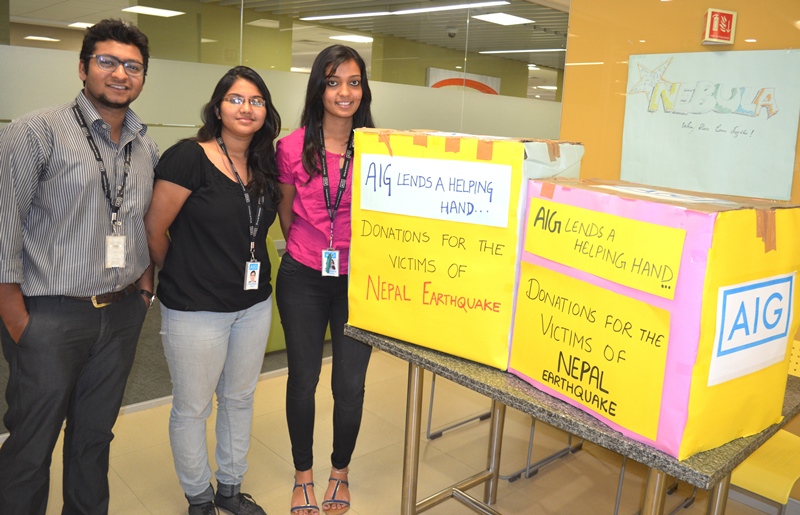 AIG LENDS A HELPING
HAND...
DONATIONS FOR THE
VICTIMS OF
NEPAL EARTHQUAKE
AIG LENDS A
HELPING HAND
...
DONATIONS FOR THE
VICTIMS OF
NEPAL
EARTHQUAKE
AIG
NEBULA